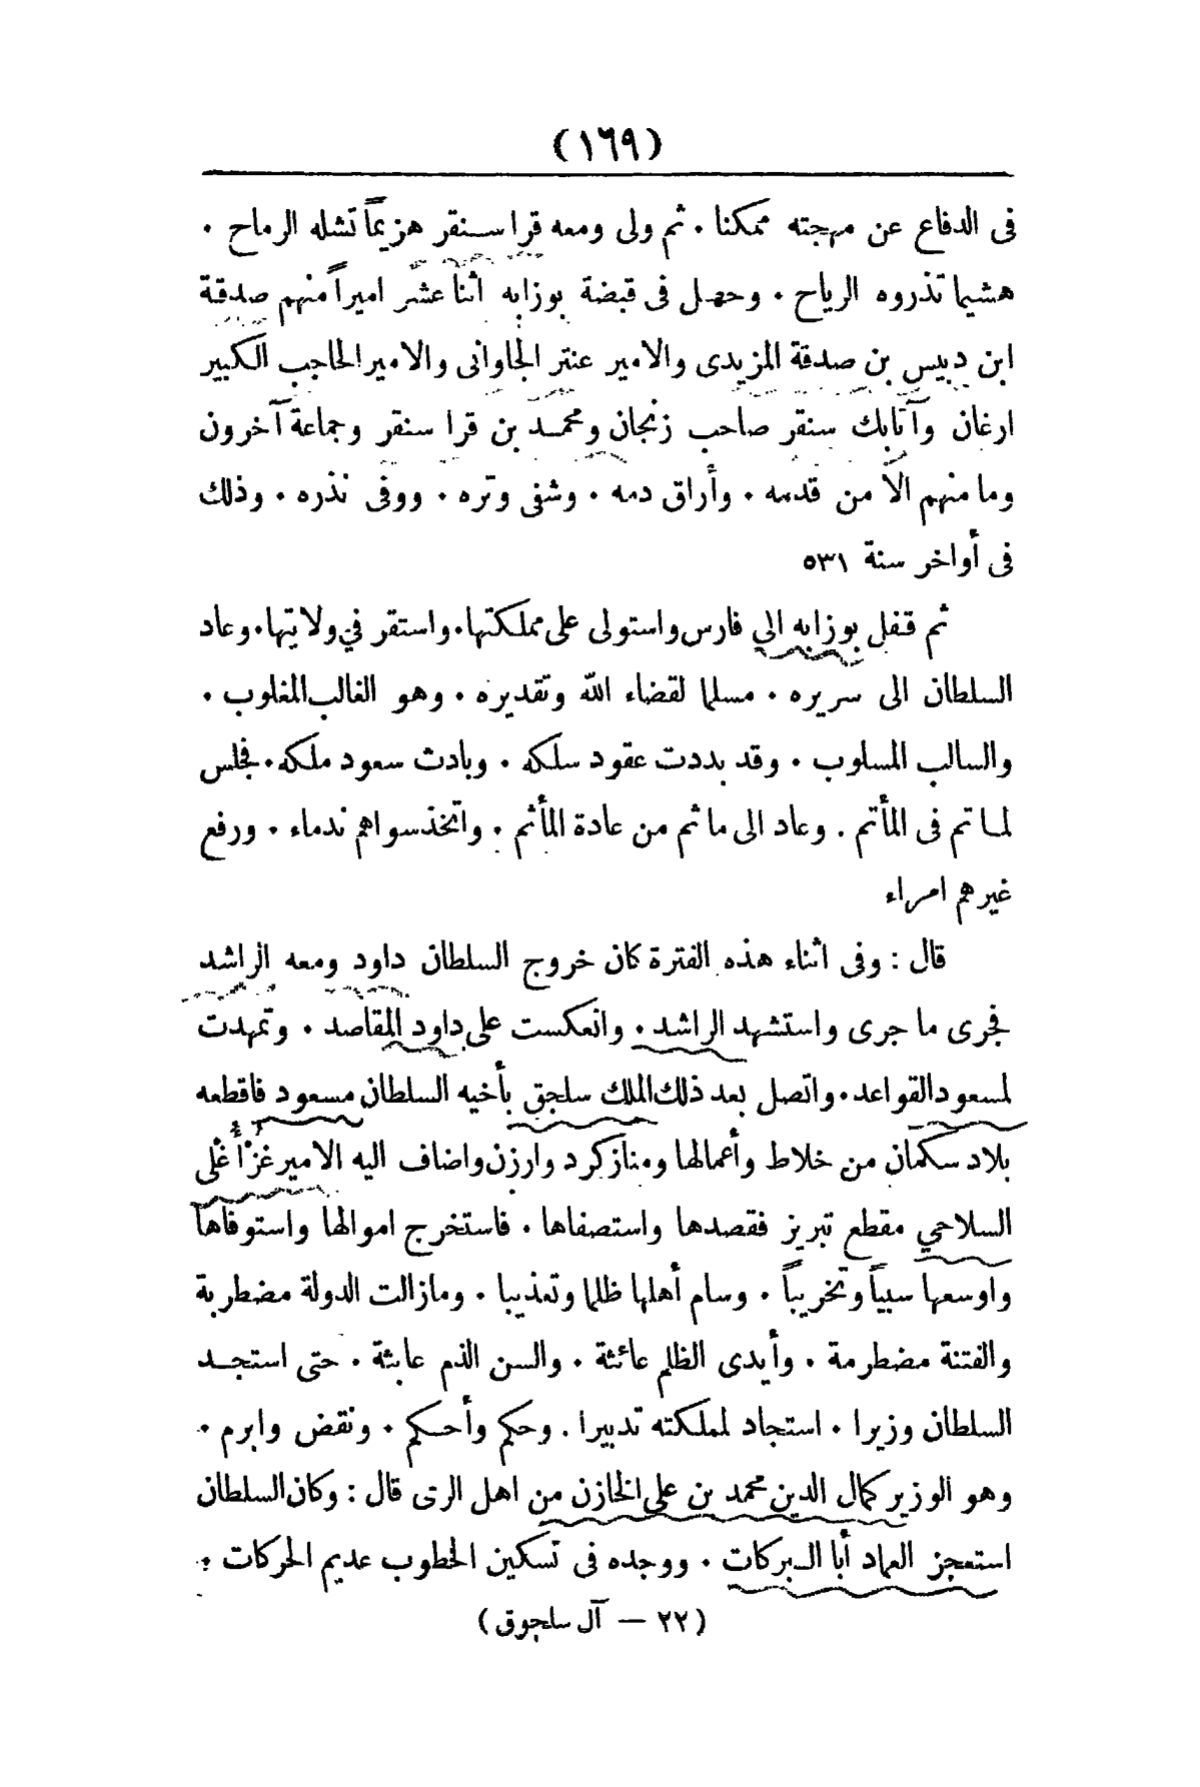 (١٦٩)
فى الدفاع عن مهجته ممكنا ٠ ثم ولى ومعه قرا سنقر هزيماً تشله الرماح ٠
هشيما تذروه الرياح ٠ وحصل فى قبضة بوزابه اثنا عشر اميراً منهم صدقة
ابن دبيس بن صدقة المزيدى والامير عنتر الجاوانى والامير الحاجب الكبير
ارغان وآتابك سنقر صاحب زنجان ومحمد بن قرا سنقر وجماعة آخرون
وما منهم الاّ من قدمه ٠ وأراق دمه ٠ وشفى وتره ٠ ووفى نذره ٠ وذلك
فى أواخر سنة ٥٣١
ثم قفل بوزابه الى فارس واستولى على مملكتها٠ واستقر في ولايتها٠ وعاد
السلطان الى سريره ٠ مسلما لقضاء الله وتقديره ٠ وهو الغالب المغلوب ٠
والسالب المسلوب ٠ وقد بددت عقود سلكه ٠ وبادت سعود ملكه٠ فجلس
لما تم فى المأتم . وعاد الى ما ثم من عادة المأثم ٠ واتخذ سواهم ندماء ٠ ورفع
غيرهم امراء
قال : وفى اثناء هذه الفترة كان خروج السلطان داود ومعه الراشد
فجرى ما جرى واستشهد الراشد ٠ وانعكست على داود المقاصد ٠ وتمهدت
لمسعود القواعد٠ واتصل بعد ذلك الملك سلجق بأخيه السلطان مسعود فاقطعه
بلاد سكمان من خلاط وأعمالها ومنازكرد وارزن واضاف اليه الامير غزْأُغْلى
السلاحي مقطع تبريز فقصدها واستصفاها ٠ فاستخرج اموالها واستوفاها
واوسعها سبياً وتخريباً ٠ وسام أهلها ظلما وتعذيبا ٠ ومازالت الدولة مضطربة
والفتنة مضطرمة ٠ وأيدى الظلم عائثة ٠ والسن الذم عابثة ٠ حتى استجد
السلطان وزيرا ٠ استجاد لمملكته تدبيرا . وحكم وأحكم ٠ ونقض وابرم ٠
وهو الوزير كمال الدين محمد بن على الخازن من اهل الرى قال : وكان السلطان
استعجز العماد أبا البركات ٠ ووجده فى تسكين الخطوب عديم الحركات ٠
(٢٢ — آل سلجوق)